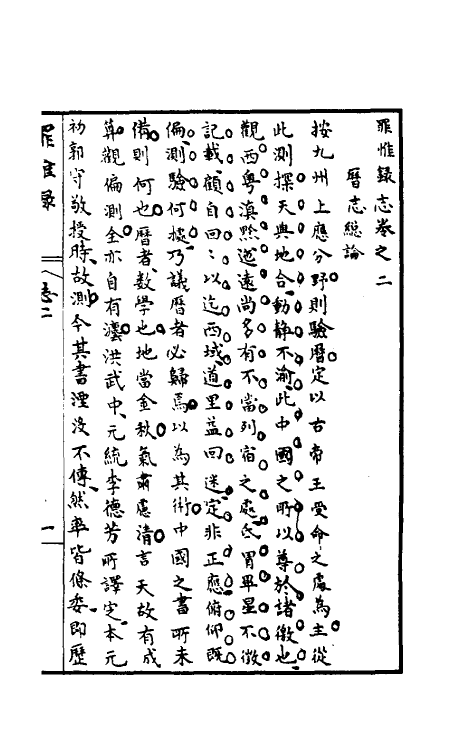 罪惟錄志卷之二
曆志總論
按九州上應分野則驗曆定以古帝王受命之處為主從
此測探天與地合動静不渝此中國之所以尊於諸徼也
觀西粤滇黔遼遠尚多有不當列宿之處氐胃畢星不徵
記載顧自回以迄西域道里益回迷定非正應俯仰既
偏測驗何據乃議曆者必歸焉以為其術中國之書所未
備則何也曆者數學也地當金秋氣肅慮清言天故有成
算觀偏測全亦自有瀍洪武中元統李德芳所譯定本元
初郭守敬授時故測今其書湮没不傳然率皆條委即歷
罪惟錄
志二
一